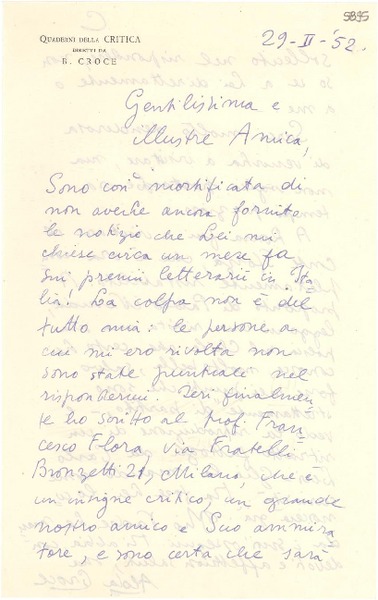 5895
QUADERNI DELLA CRITICA
DIRETTI DA
B. CROCE
29-II-'52.
Gentilissima e
Illustre Amica,
Sono così mortificata di
non averLe ancora fornito
le notizie che Lei mi
chiese circa un mese fa
sui premii letterarii in Ita-
lia! La colpa non è del
tutto mia: le persone a
cui mi ero rivolta non
sono state puntuali nel
rispondermi. Ieri finalmen-
te ho scritto al Prof. Fran-
cesco Flora, via Fratelli
Bronzetti 21, Milano, che è
un insigne critico, un grande
nostro amico e Suo ammira-
tore, e sono certa che sarà